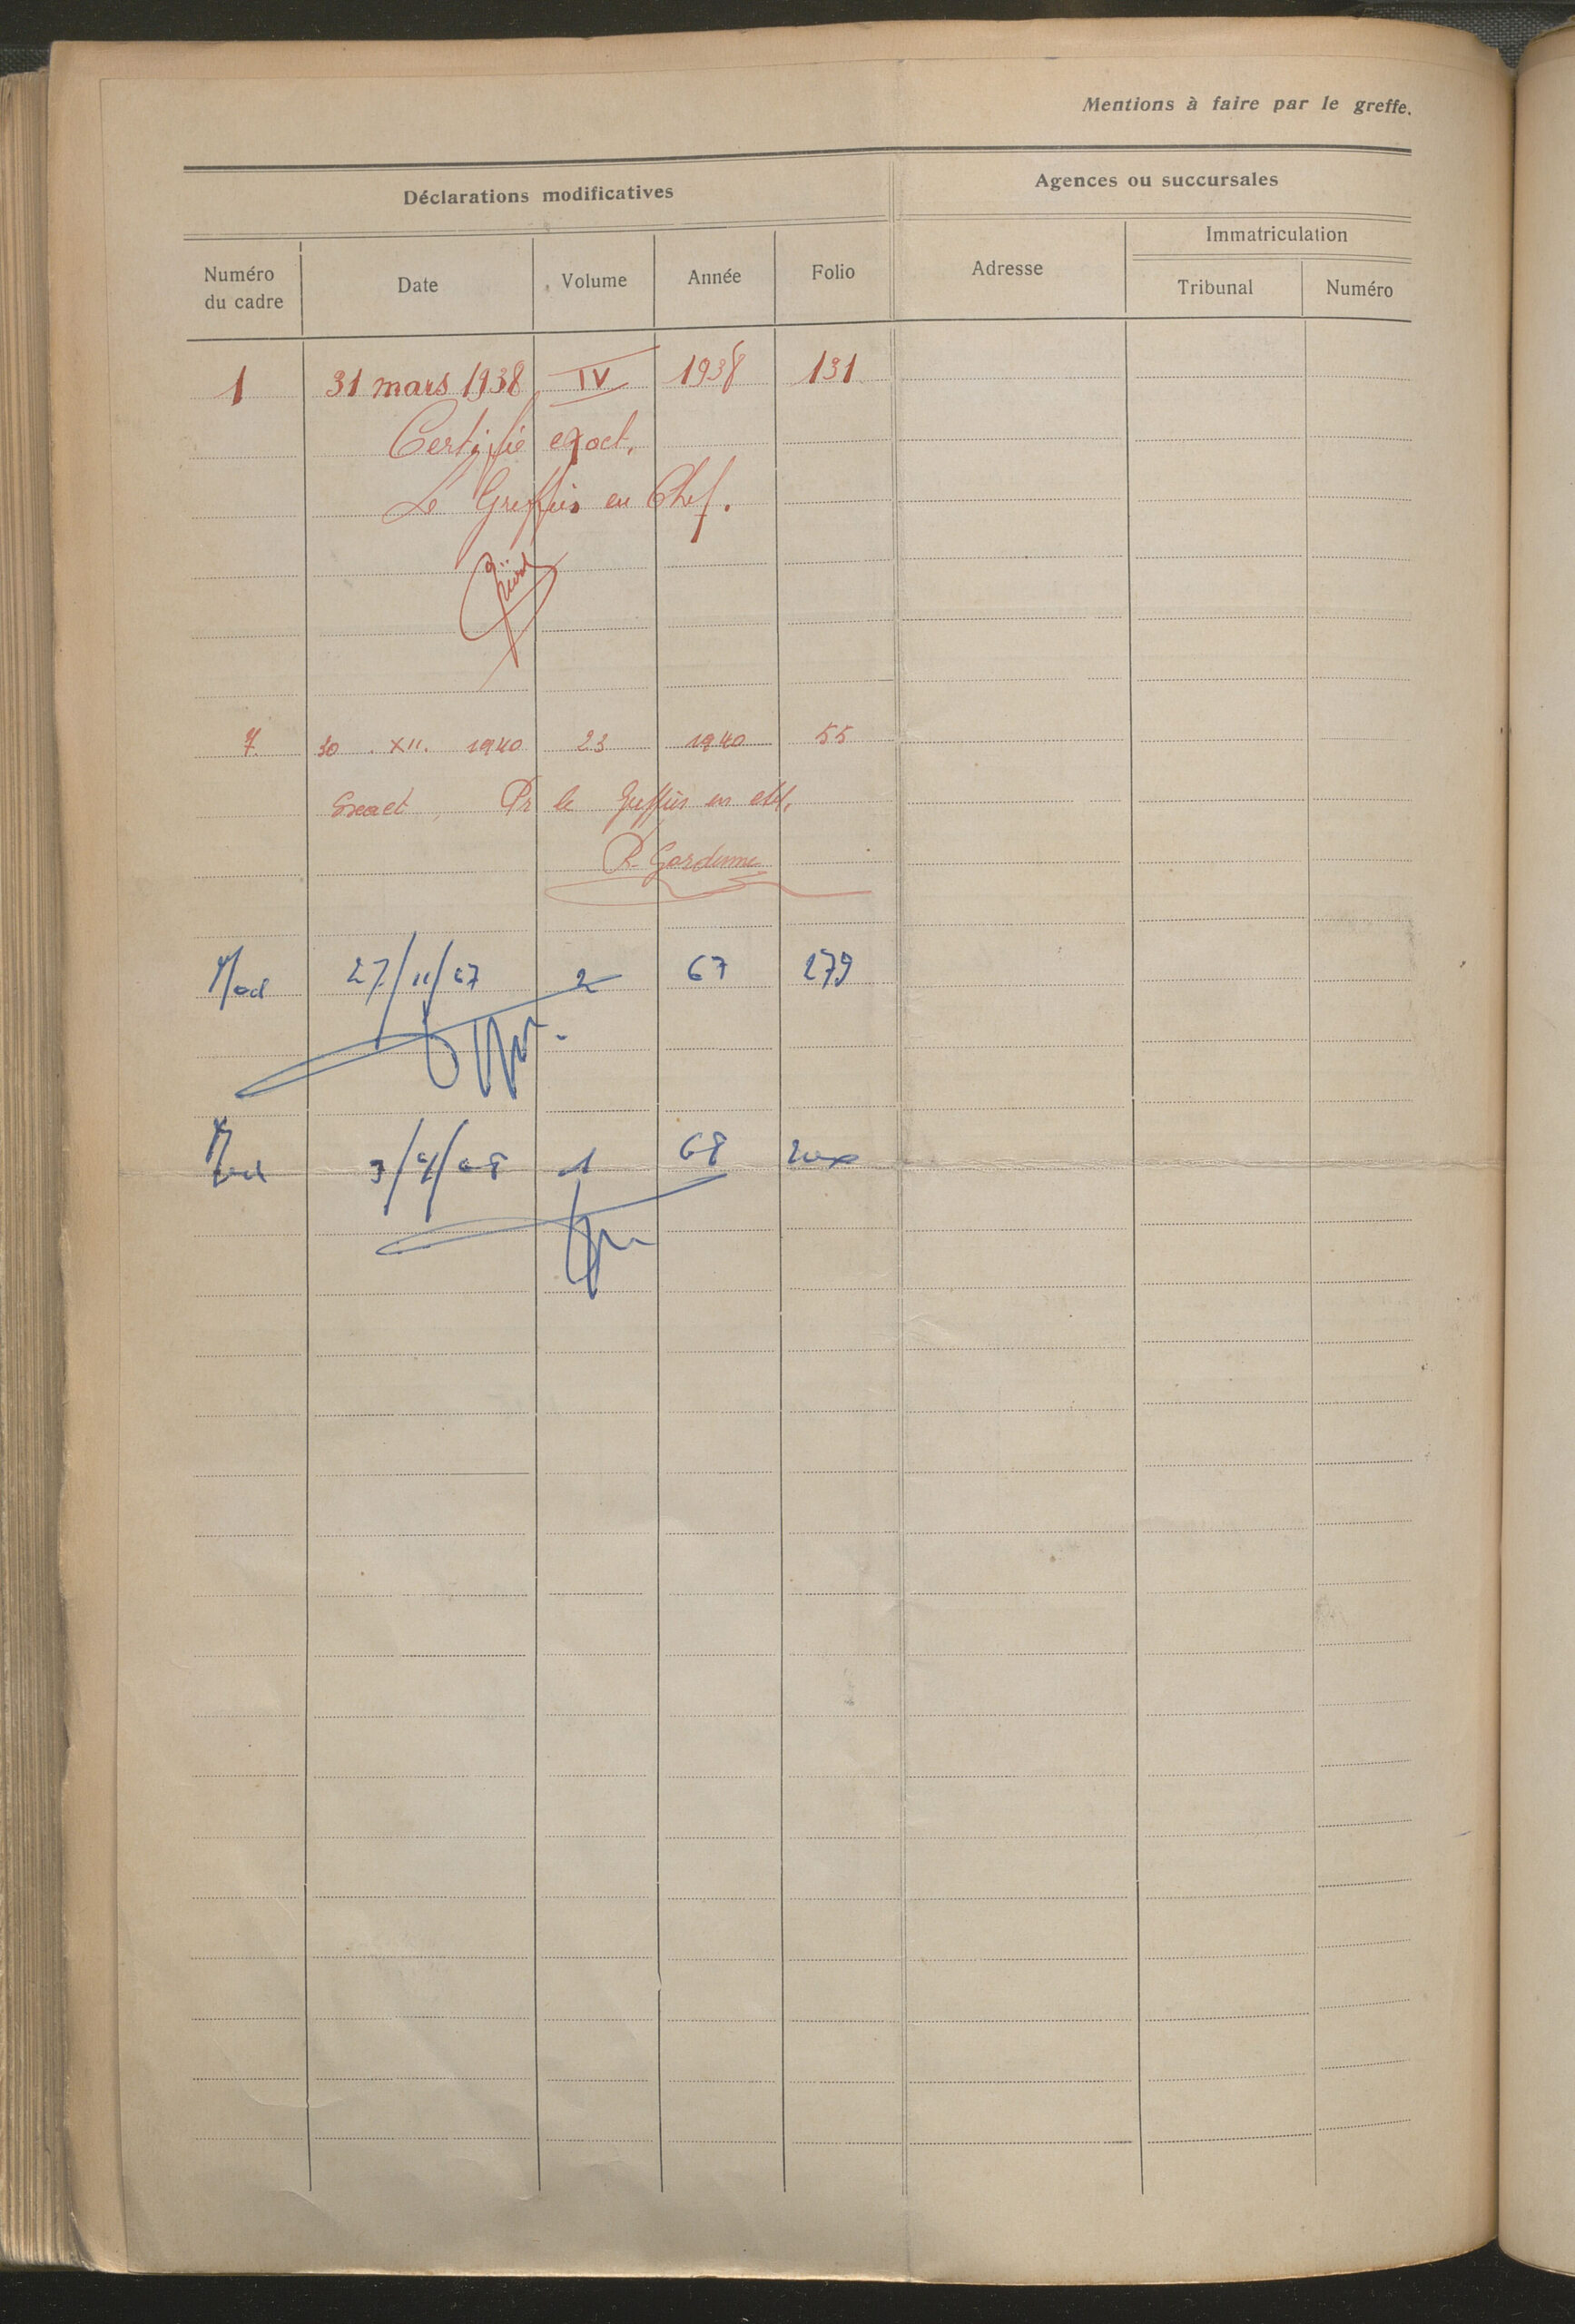 Mentions à faire par le greffe.
Déclarations modificatives
Agences ou succursales
Numéro du cadre
Date
Volume
Année
Folio
Adresse
Immatriculation
Tribunal
Numéro
1 31 mars 1938 IV 1938 131
Certifié exact,
Le Greffier en Chef.
7. 30 . XII. 1940 23 1940 55
Exact, Pr le Greffier en chef,
Mod 27/11/67 2 67 279
Mod 3/4/68 1 68